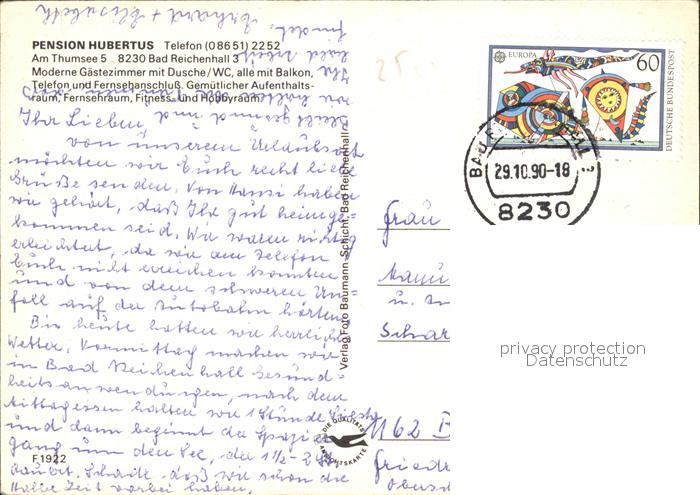 Erhard + Elisabeth
findet.
Ihr bald Arbeit
wir hoffen, daß
Bleibt gesund und
PENSION HUBERTUS Telefon (0 86 51) 22 52
Am Thumsee 5 8230 Bad Reichenhall 3
Moderne Gästezimmer mit Dusche/WC, alle mit Balkon,
Telefon und Fernsehanschluß. Gemütlicher Aufenthalts-
raum, Fernsehraum, Fitness- und Hobbyraum
Ihr Lieben
von unserem Urlaubsort
möchten wir Euch recht liebe
Grüße senden. Von Hansi haben
wir gehört, daß Ihr gut heimge-
kommen seid. Wir waren richtig
erleichtert, da wir am Telefon
Euch nicht erreichen konnten
und von dem schweren Un-
fall auf der Autobahn hörten.
Bis heute hatten wir herrliches
Wetter. Vormittag machen wir
in Bad Reichenhall Gesund-
heitsanwendungen, nach dem
Mittagessen halten wir 1 Stunde Siesta
und dann beginnt der Spazier-
gang um den See, der 1½ - 2 Std
dauert. Schade, daß wir schon die
Halbe Zeit vorbei haben.
F 1922
Verlag Foto Baumann-Schicht, Bad Reichenhall
DIE QUALITÄTS
ANSICHTSKARTE
EUROPA
60
DEUTSCHE BUNDESPOST
29.10.90-18
8230
Frau
u.
Schar
1162
Friedr
privacy protection
Datenschutz